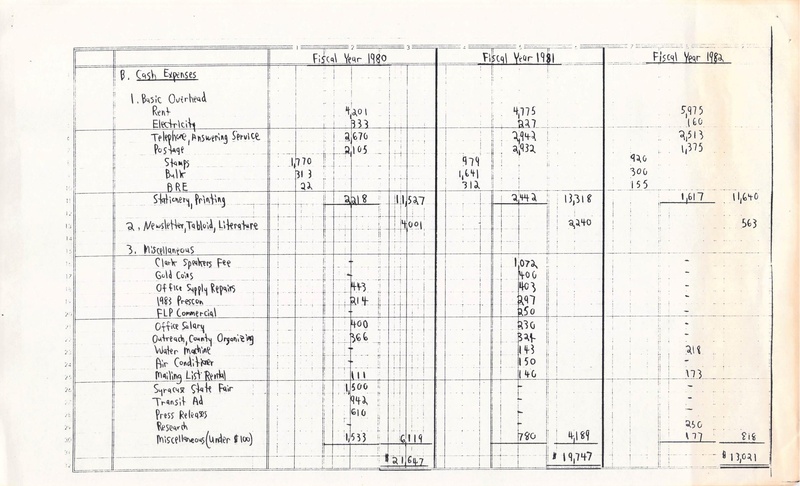 Fiscal Year 1980 Fiscal Year 1981 Fiscal Year 1982
B. Cash Expenses
1. Basic Overhead
Rent 4,201 4,775 5,975
Electricity 333 227 160
Telephone, Answering Service 2,670 2,942 2,513
Postage 2,105 2,932 1,375
Stamps 1,770 979 920
Bulk 313 1,641 300
BRE 22 312 155
Stationery, Printing 2,218 11,527 2,442 13,318 1,617 11,640
2. Newsletter, Tabloid, Literature 4,001 2,240 563
3. Miscellaneous
Clark Speakers Fee - 1,072 -
Gold Coins - 400 -
Office Supply Repairs 443 403 -
1983 Prescon 214 297 -
FLP Commercial - 250 -
Office Salary 400 230 -
Outreach, County Organizing 366 324 -
Water Machine - 143 218
Air Conditioner - 150 -
Mailing List Rental 111 140 173
Syracuse State Fair 1,500 - -
Transit Ad 942 - -
Press Releases 610 - -
Research - - 250
Miscellaneous (Under $100) 1,533 6,119 780 4,189 177 818
$21,647 $19,747 $13,021